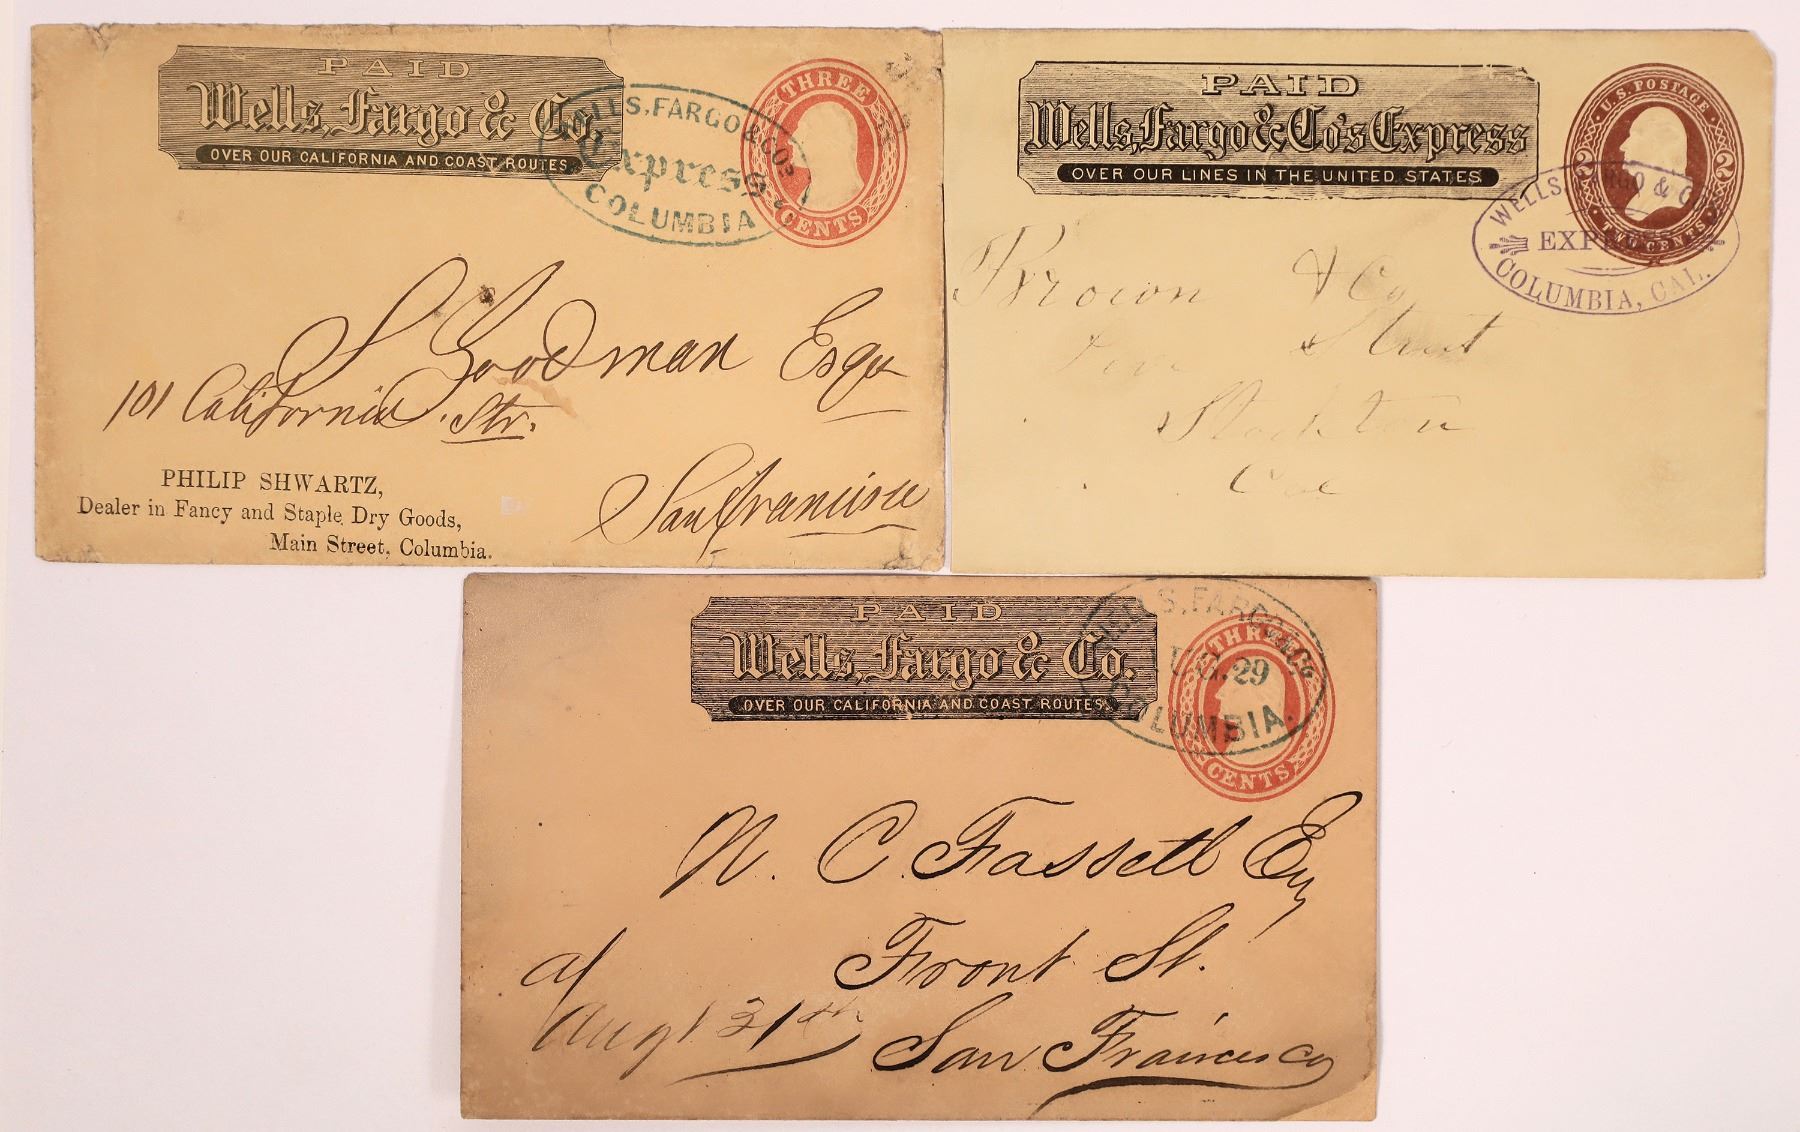 PAID
Wells, Fargo & Co.
OVER OUR CALIFORNIA AND COAST ROUTES.
THREE
CENTS
WELLS, FARGO & CO'S
Express
COLUMBIA
S Goodman Esqr
101 California Str.
San Francisco
PHILIP SHWARTZ,
Dealer in Fancy and Staple Dry Goods,
Main Street, Columbia.
PAID
Wells, Fargo & Co's Express
OVER OUR LINES IN THE UNITED STATES
U.S. POSTAGE
2 2
TWO CENTS
WELLS FARGO & CO'S
EXPRESS
COLUMBIA, CAL.
Brown & Co
Street
Stockton
Cal
PAID
Wells, Fargo & Co.
OVER OUR CALIFORNIA AND COAST ROUTES.
THREE
CENTS
WELLS, FARGO & Co
29
COLUMBIA.
N. C. Fassett Esq
Front St.
San Francisco
a/
Augt 31th